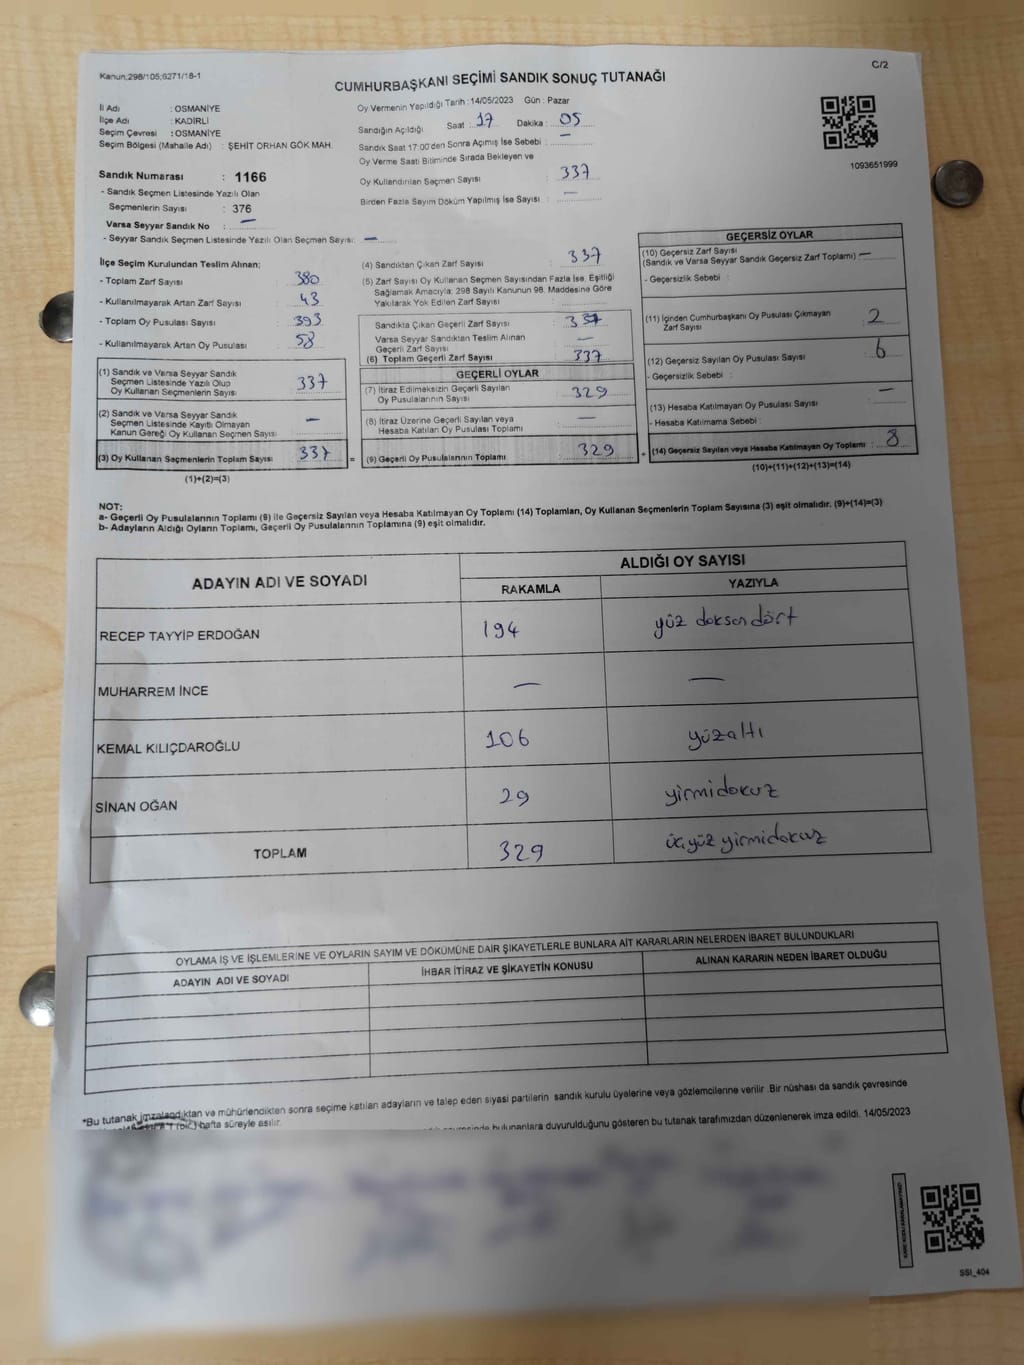 Kanun;298/105;6271/18-1
C/2
CUMHURBAŞKANI SEÇİMİ SANDIK SONUÇ TUTANAĞI
İl Adı : OSMANİYE
İlçe Adı : KADİRLİ
Seçim Çevresi : OSMANİYE
Seçim Bölgesi (Mahalle Adı) : ŞEHİT ORHAN GÖK MAH.
Sandık Numarası : 1166
- Sandık Seçmen Listesinde Yazılı Olan
Seçmenlerin Sayısı : 376
Varsa Seyyar Sandık No : —
- Seyyar Sandık Seçmen Listesinde Yazılı Olan Seçmen Sayısı: —
Oy Vermenin Yapıldığı Tarih : 14/05/2023 Gün : Pazar
Sandığın Açıldığı Saat : 17 Dakika : 05
Sandık Saat 17:00'den Sonra Açımış İse Sebebi : —
Oy Verme Saati Bitiminde Sırada Bekleyen ve
Oy Kullandırılan Seçmen Sayısı : 337
Birden Fazla Sayım Döküm Yapılmış İse Sayısı : —
1093651999
İlçe Seçim Kurulundan Teslim Alınan;
- Toplam Zarf Sayısı : 380
- Kullanılmayarak Artan Zarf Sayısı : 43
- Toplam Oy Pusulası Sayısı : 393
- Kullanılmayarak Artan Oy Pusulası : 58
(1) Sandık ve Varsa Seyyar Sandık
Seçmen Listesinde Yazılı Olup
Oy Kullanan Seçmenlerin Sayısı : 337
(2) Sandık ve Varsa Seyyar Sandık
Seçmen Listesinde Kayıtlı Olmayan
Kanun Gereği Oy Kullanan Seçmen Sayısı : —
(3) Oy Kullanan Seçmenlerin Toplam Sayısı : 337
(1)+(2)=(3)
(4) Sandıktan Çıkan Zarf Sayısı : 337
(5) Zarf Sayısı Oy Kullanan Seçmen Sayısından Fazla İse, Eşitliği
Sağlamak Amacıyla; 298 Sayılı Kanunun 98. Maddesine Göre
Yakılarak Yok Edilen Zarf Sayısı :
Sandıkta Çıkan Geçerli Zarf Sayısı : 337
Varsa Seyyar Sandıktan Teslim Alınan
Geçerli Zarf Sayısı : —
(6) Toplam Geçerli Zarf Sayısı : 337
GEÇERLİ OYLAR
(7) İtiraz Edilmeksizin Geçerli Sayılan
Oy Pusulalarının Sayısı : 329
(8) İtiraz Üzerine Geçerli Sayılan veya
Hesaba Katılan Oy Pusulası Toplamı : —
= (9) Geçerli Oy Pusulalarının Toplamı : 329
GEÇERSİZ OYLAR
(10) Geçersiz Zarf Sayısı
(Sandık ve Varsa Seyyar Sandık Geçersiz Zarf Toplamı) : —
- Geçersizlik Sebebi :
(11) İçinden Cumhurbaşkanı Oy Pusulası Çıkmayan
Zarf Sayısı : 2
(12) Geçersiz Sayılan Oy Pusulası Sayısı : 6
- Geçersizlik Sebebi :
(13) Hesaba Katılmayan Oy Pusulası Sayısı : —
- Hesaba Katmama Sebebi :
+ (14) Geçersiz Sayılan veya Hesaba Katılmayan Oy Toplamı : 8
(10)+(11)+(12)+(13)=(14)
NOT:
a- Geçerli Oy Pusulalarının Toplamı (9) ile Geçersiz Sayılan veya Hesaba Katılmayan Oy Toplamı (14) Toplamları, Oy Kullanan Seçmenlerin Toplam Sayısına (3) eşit olmalıdır. (9)+(14)=(3)
b- Adayların Aldığı Oyların Toplamı, Geçerli Oy Pusulalarının Toplamına (9) eşit olmalıdır.
ADAYIN ADI VE SOYADI ALDIĞI OY SAYISI
RAKAMLA YAZIYLA
RECEP TAYYİP ERDOĞAN 194 yüz doksan dört
MUHARREM İNCE — —
KEMAL KILIÇDAROĞLU 106 yüzaltı
SİNAN OĞAN 29 yirmidokuz
TOPLAM 329 üçyüz yirmidokuz
OYLAMA İŞ VE İŞLEMLERİNE VE OYLARIN SAYIM VE DÖKÜMÜNE DAİR ŞİKAYETLERLE BUNLARA AİT KARARLARIN NELERDEN İBARET BULUNDUKLARI
ADAYIN ADI VE SOYADI İHBAR İTİRAZ VE ŞİKAYETİN KONUSU ALINAN KARARIN NEDEN İBARET OLDUĞU
*Bu tutanak imzalandıktan ve mühürlendikten sonra seçime katılan adayların ve talep eden siyasi partilerin sandık kurulu üyelerine veya gözlemcilerine verilir. Bir nüshası da sandık çevresinde
(bir) hafta süreyle asılır.
bulunanlara duyurulduğunu gösteren bu tutanak tarafımızdan düzenlenerek imza edildi. 14/05/2023
SSI_404